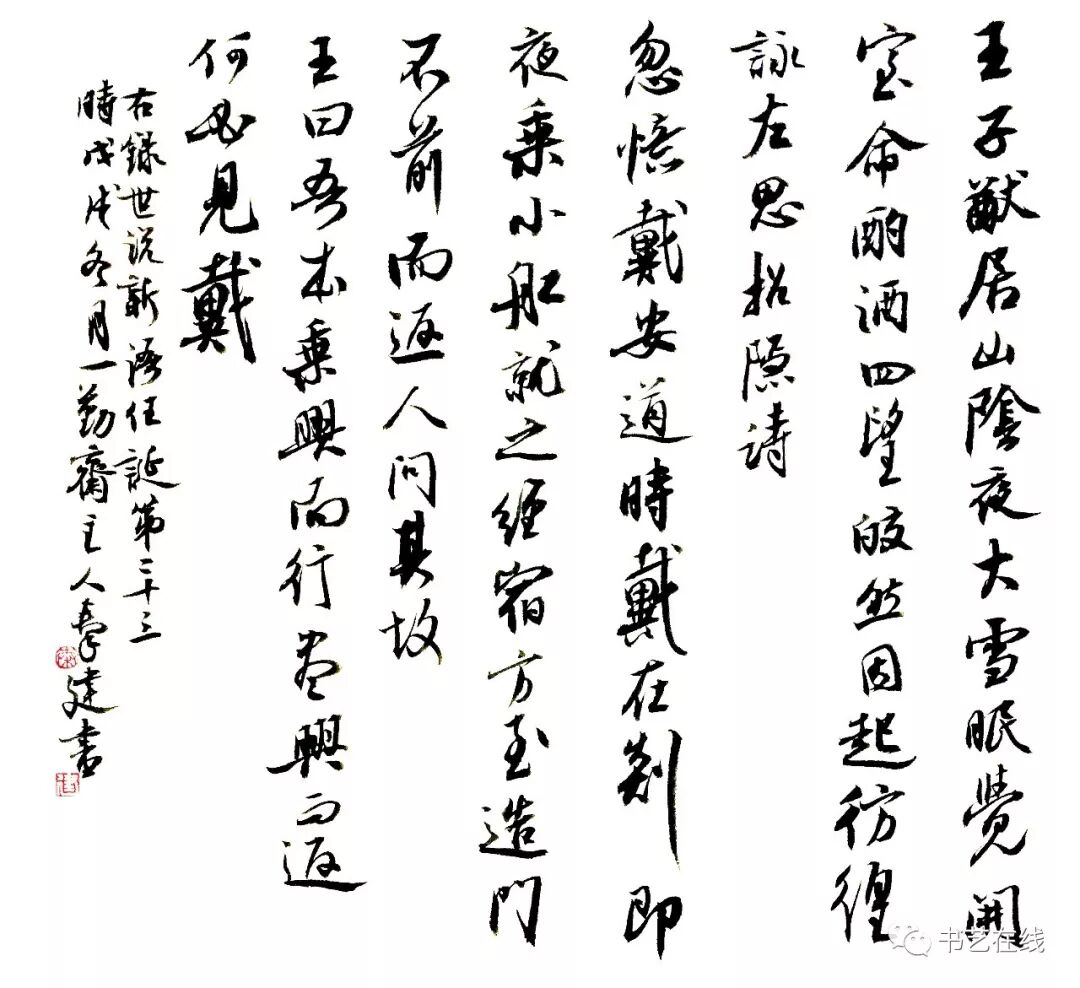 王子猷居山陰夜大雪眠覺開
室命酌酒四望皎然因起彷徨
詠左思招隐詩
忽憶戴安道時戴在剡即
夜乗小舩就之經宿方至造門
不前而返人问其故
王曰吾本乗興而行尽興而返
何必見戴
右録世说新语任誕第二十三
時戊戌冬月一勤齋主人 建書
书艺在线